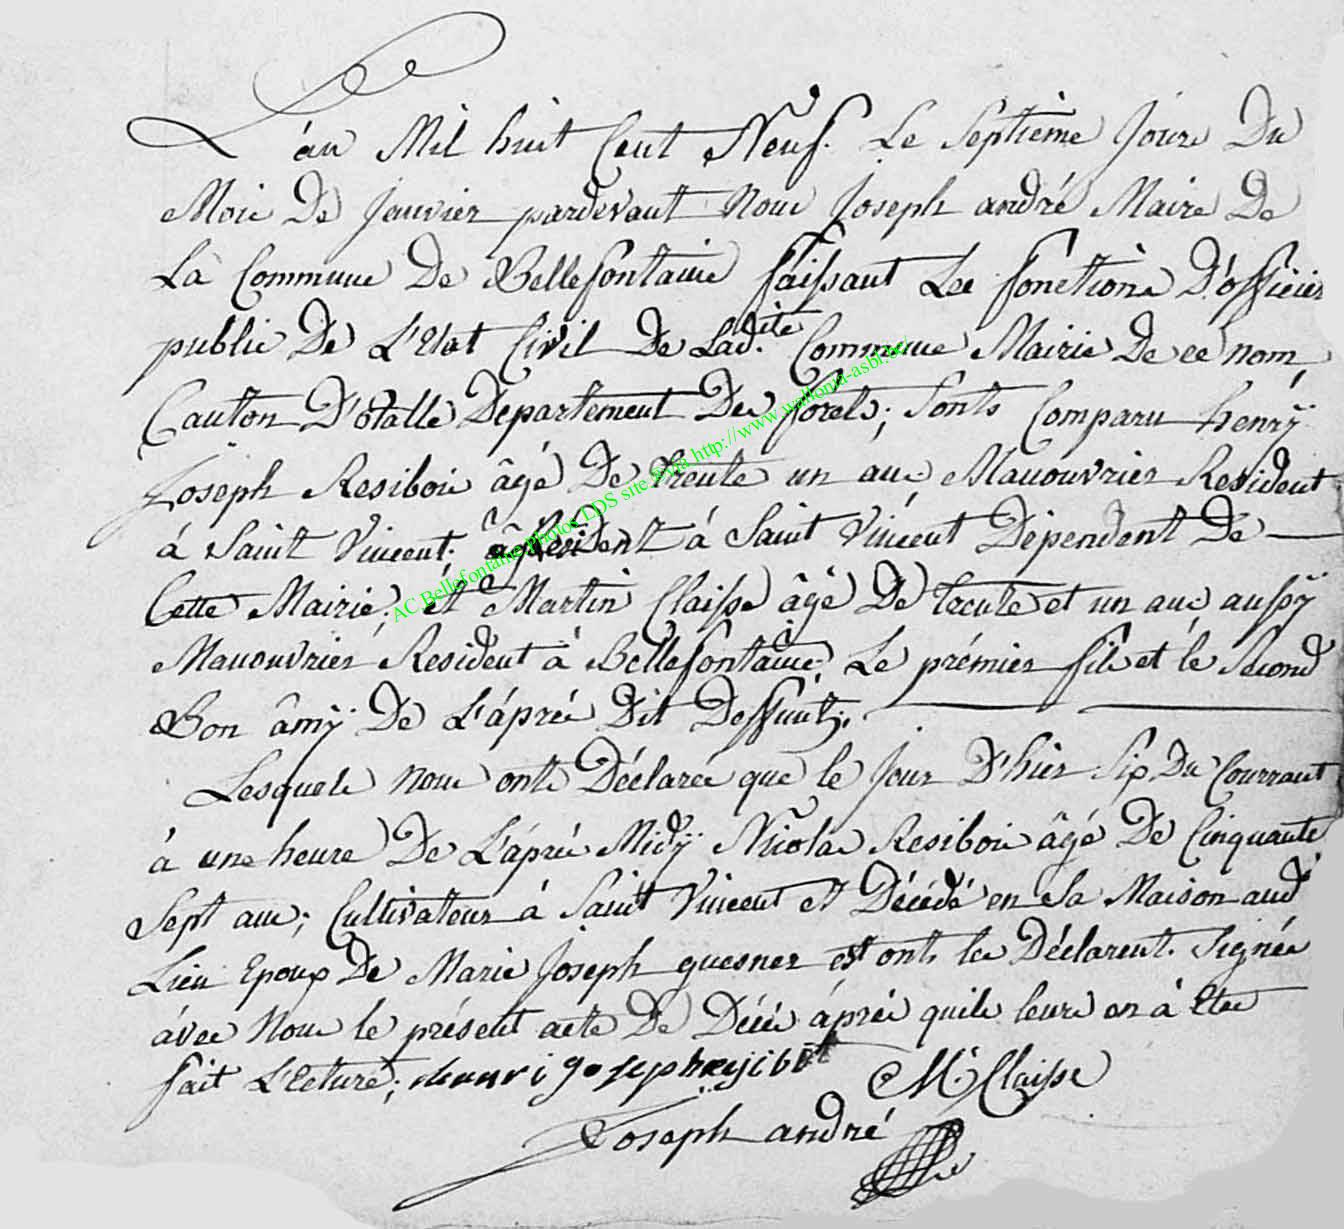 L'an Mil huit Cent Neuf. Le Septieme Jour Du
Mois De Janvier pardevant Nous Joseph andré Maire De
La Commune De Bellefontaine faissant Les fonctions D'officier
public De L'Etat Civil De Ladite Commune Mairie De ce nom,
Canton D'Etalle Departement Des forets; Sonts Comparu henry
Joseph Resibois âgé De trente un ans Manouvrier Resident
á Saint Vincent. Résident á Saint Vincent Dépendent De
Cette Mairie; et Martin Claisse âgé De trente et un ans aussÿ
Manouvrier Resident á Bellefontaine Le prémier fils et le Second
Bon âmÿ De L'áprés Dit Deffunt;.
Lesquels Nous onts Déclarés que le Jour D'hier Six Du Courrant
á une heure De L'áprés Midÿ Nicolas Resibois âgé De Cinquante
Sept ans; Cultivateur á Saint Vincent et Décédé en Sa Maison aud
Lieu Epoux De Marie Joseph guesner et onts les Déclarent. Signés
ávec Nous le présent acte De Décés áprés quils leurs en á Etes
fait L'Ecture; henri joseph resibois M. Claisse
Joseph andré
AC Bellefontaine Photos LDS site # via http://www.wallonia-asbl.be/